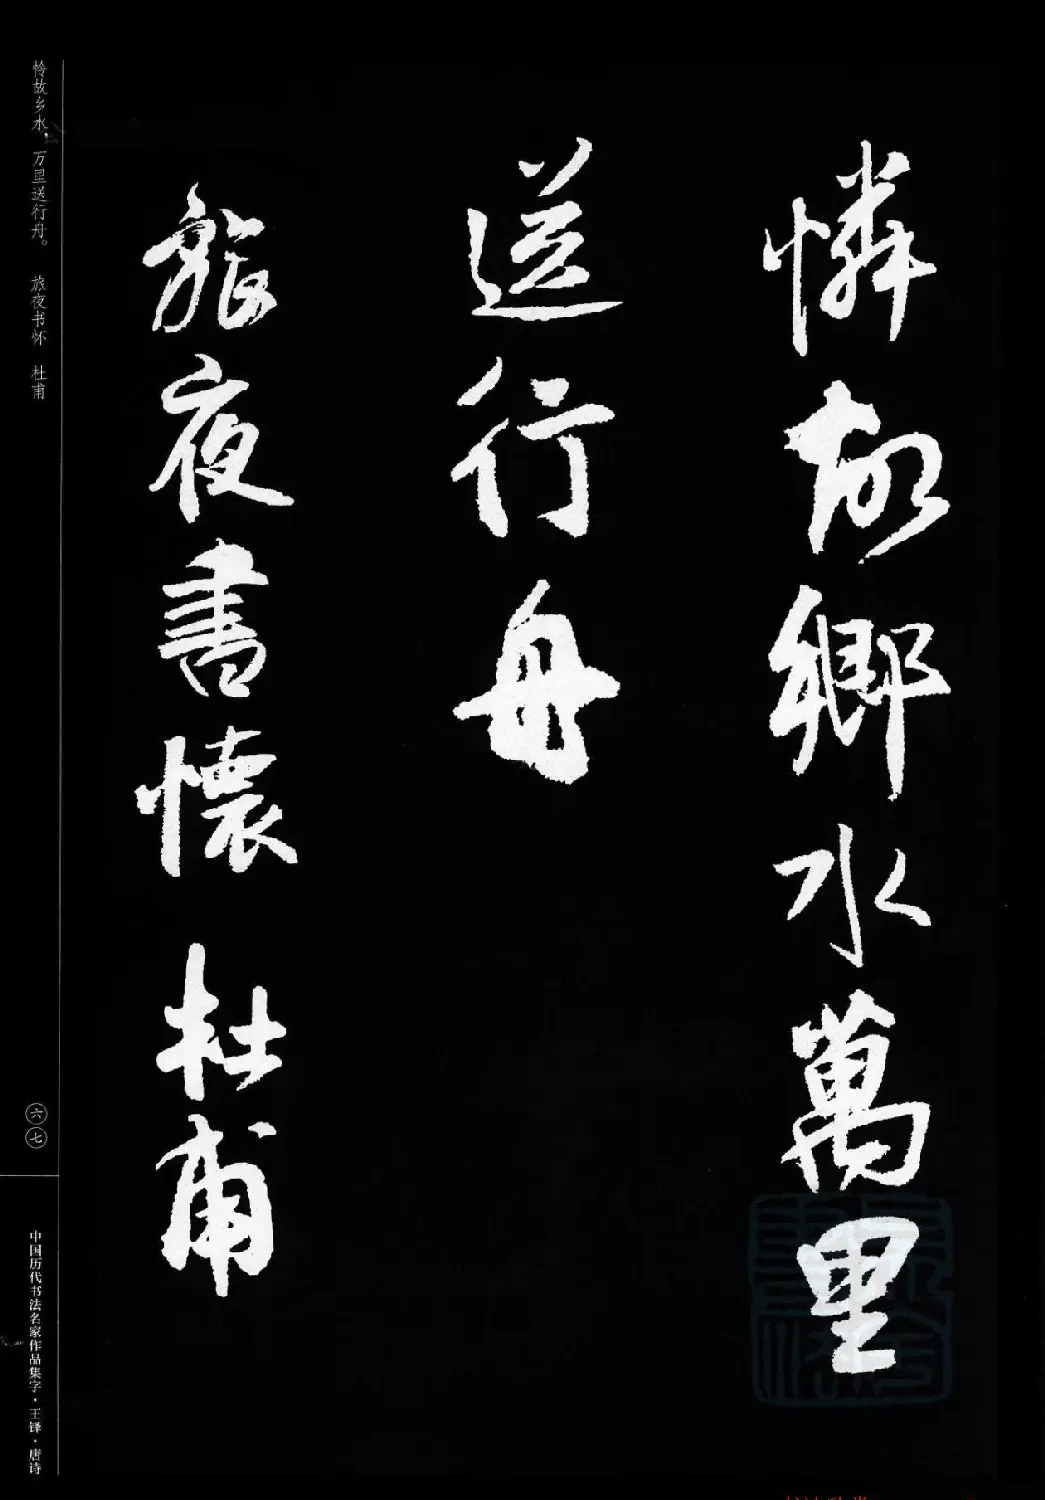 憐故鄉水萬里
送行舟
旅夜書懷 杜甫
怜故乡水，万里送行舟。 旅夜书怀 杜甫
六七
中国历代书法名家作品集字·王铎·唐诗